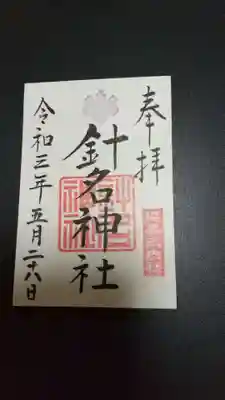 奉拝
針名神社
令和三年五月二十八日